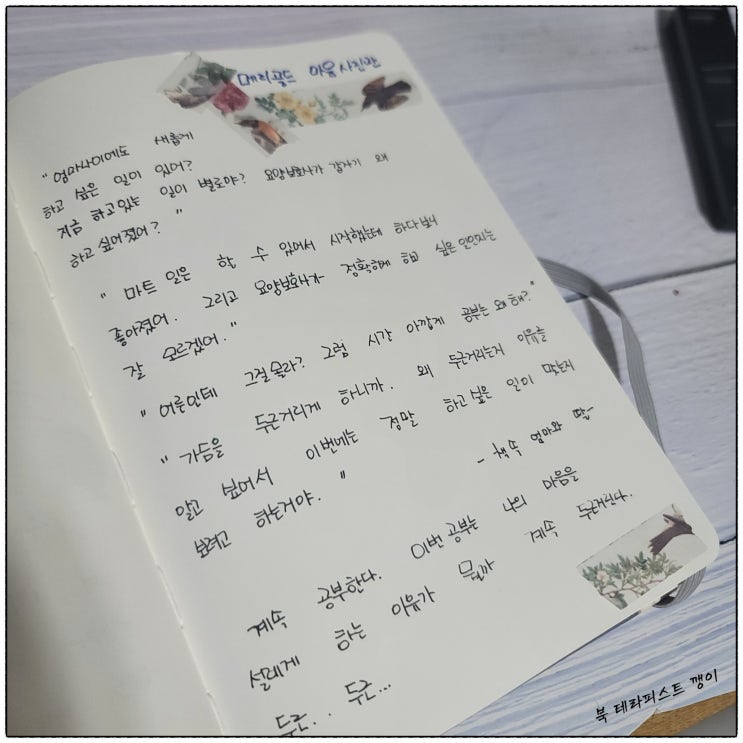 메리골드 마음 사진관
"엄마나이에도 새롭게
하고 싶은 일이 있어?
지금 하고있는 일이 별로야? 요양보호사가 갑자기 왜
하고 싶어졌어?"
"마트 일은 할 수 있어서 시작했는데 하다보니
좋아졌어. 그리고 요양보호사가 정확하게 하고 싶은 일인지는
잘 모르겠어."
"어른인데 그걸 몰라? 그럼 시간 아깝게 공부는 왜 해?"
"가슴을 두근거리게 하니까. 왜 두근거리는지 이유를
알고 싶어서 이번에는 정말 하고 싶은 일이 맞는지
보려고 하는거야."
- 책속 엄마와 딸-
계속 공부한다. 이번 공부는 나의 마음을
설레게 하는 이유가 뭘까 계속 두근거린다.
두근.. 두근...
북 테라피스트 깽이